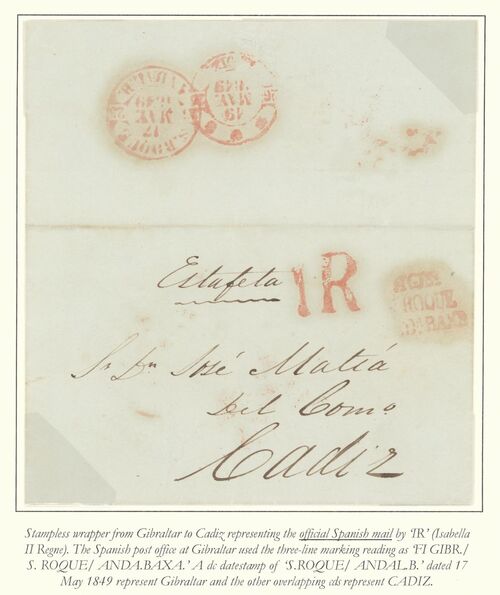 S.ROQUE
17
MAY
1849
19
MAY
1849
Estafeta
1R
Sr Dn José Matiá
del Como
Cadiz
ROQUE
Stampless wrapper from Gibraltar to Cadiz representing the official Spanish mail by 'IR' (Isabella
II Regne). The Spanish post office at Gibraltar used the three-line marking reading as 'FI GIBR./
S. ROQUE/ ANDA.BAXA.' A dc datestamp of 'S.ROQUE/ ANDAL.B.' dated 17
May 1849 represent Gibraltar and the other overlapping cds represent CADIZ.